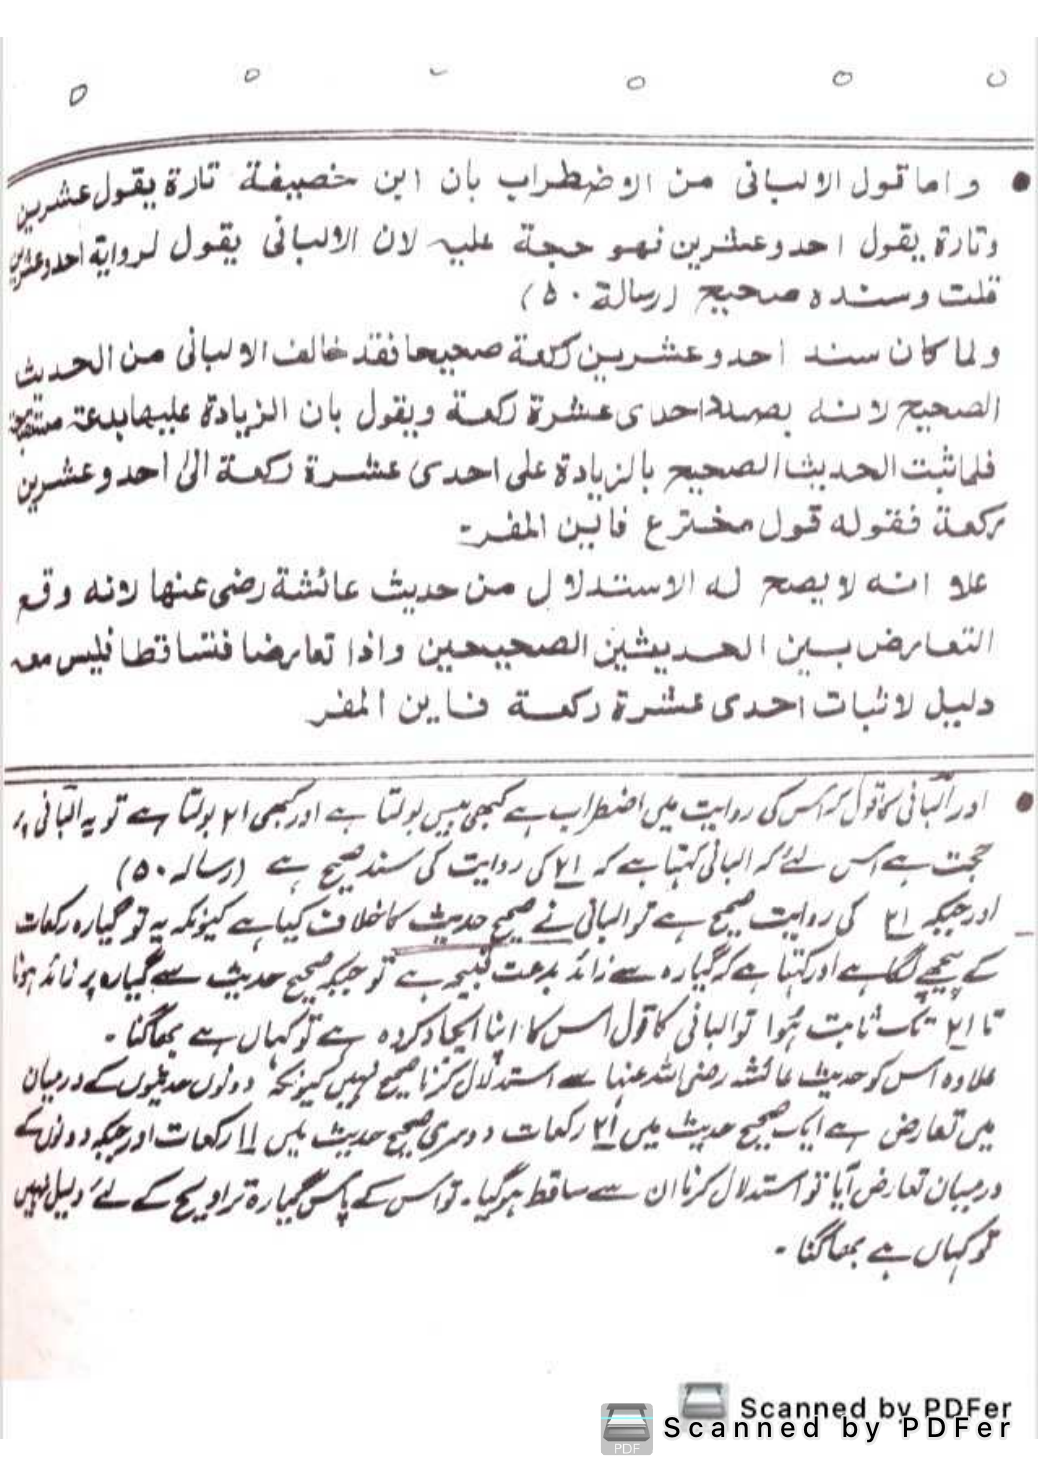 و اما قول الالبانى من الاضطراب بان ابن خصيفة تارة يقول عشرين
وتارة يقول احد وعشرين فهو حجة عليه لان الالبانى يقول لرواية احد وعشرين
قلت وسنده صحيح (رسالة ٥٠)
ولما كان سند احد وعشرين ركعة صحيحا فقد خالف الالبانى من الحديث
الصحيح لانه بصدد احدى عشرة ركعة ويقول بان الزيادة عليها بدعة
فلما ثبت الحديث الصحيح بالزيادة على احدى عشرة ركعة الىٰ احد وعشرين
ركعة فقوله قول مخترع فاين المفر-
علا انه لا يصح له الاستدلال من حديث عائشة رضى عنها لانه وقع
التعارض بين الحديثين الصحيحين واذا تعارضا فتساقطا فليس معه
دليل لاثبات احدى عشرة ركعة فاين المفر
اور البانی کا قول کہ اس کی روایت میں اضطراب ہے کبھی بیس بولتا ہے اور کبھی ۲۱ بولتا ہے تو یہ البانی پر
حجت ہے اس لئے کہ البانی کہتا ہے کہ ۲۱ کی روایت کی سند صحیح ہے (رسالہ ۵۰)
اور جبکہ ۲۱ کی روایت صحیح ہے تو البانی نے صحیح حدیث کا خلاف کیا ہے کیونکہ یہ تو گیارہ رکعات
کے پیچھے لگا ہے اور کہتا ہے کہ گیارہ سے زائد بدعت قبیحہ ہے تو جبکہ صحیح حدیث سے گیارہ پر زائد ہونا
تا ۲۱ تک ثابت ہُوا تو البانی کا قول اس کا اپنا ایجاد کردہ ہے تو کہاں ہے بھاگنا -
علاوہ اس کو حدیث عائشہ رضی اللہ عنہا سے استدلال کرنا صحیح نہیں کیونکہ دونوں حدیثوں کے درمیان
میں تعارض ہے ایک صحیح حدیث میں ۲۱ رکعات دوسری صحیح حدیث میں ۱۱ رکعات اور جبکہ دونوں کے
درمیان تعارض آیا تو استدلال کرنا ان سے ساقط ہو گیا - تو اس کے پاس گیارہ تراویح کے لئے دلیل نہیں
تو کہاں ہے بھاگنا -
Scanned by PDFer
Scanned by PDFer
PDF